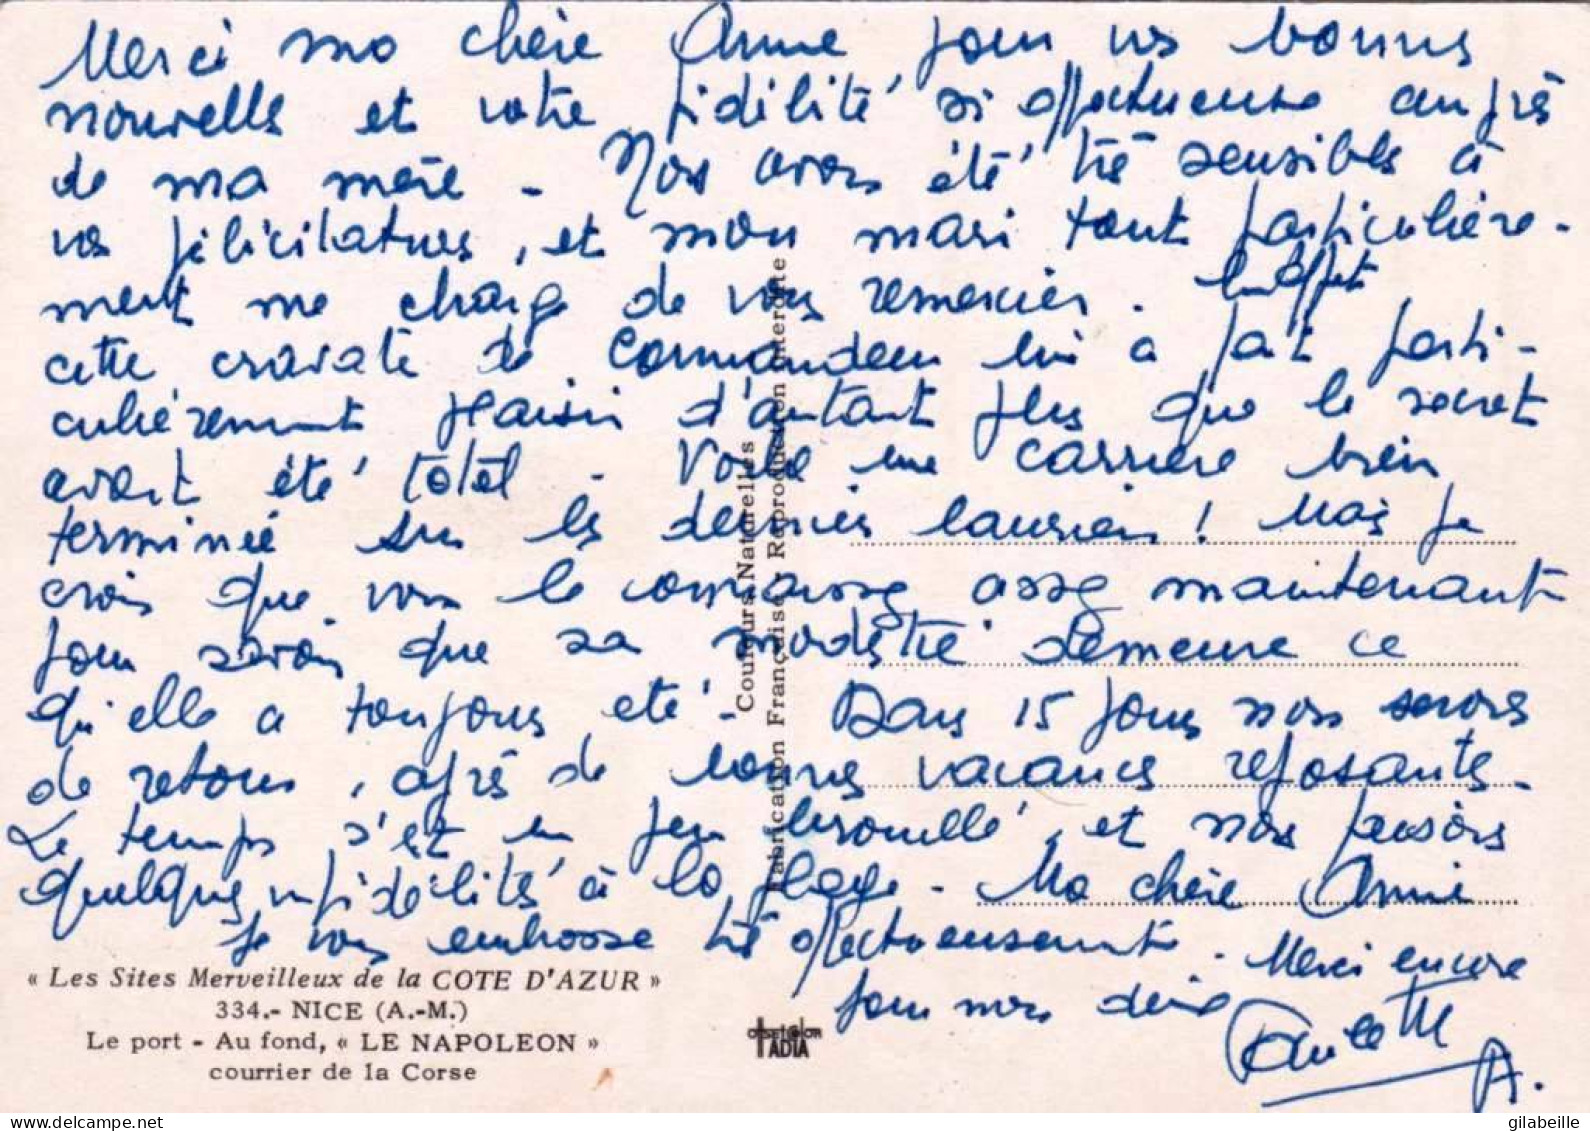 Merci ma chère Annie pour vos bonnes
nouvelles et votre fidélité si affectueuse auprès
de ma mère - Nous avons été très sensibles à
vos félicitations, et mon mari tout particulière-
ment me charge de vous remercier. En effet
cette cravate de Commandeur lui a fait parti-
culièrement plaisir d'autant plus que le secret
avait été total - Voilà une carrière bien
terminée sur les derniers lauriers ! Mais je
crois que vous le connaissez assez maintenant
pour savoir que sa modestie demeure ce
qu'elle a toujours été - Dans 15 jours nous serons
de retour, après de bonnes vacances reposantes -
Le temps s'est un peu brouillé, et nous faisons
quelques infidélités à la plage - Ma chère Annie
je vous embrasse très affectueusement. Merci encore
pour nous deux
Paulette
A.
« Les Sites Merveilleux de la COTE D'AZUR »
334.- NICE (A.-M.)
Le port - Au fond, « LE NAPOLEON »
courrier de la Corse
Couleurs Naturelles
Fabrication Française - Reproduction interdite
offset color
TADIA
www.delcampe.net
gilabeille